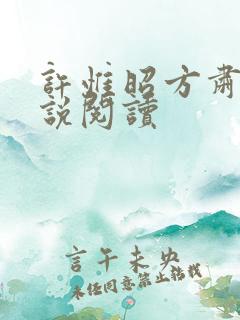 許惟昭方肅
說閱讀
言午未央
未經同意禁止轉載